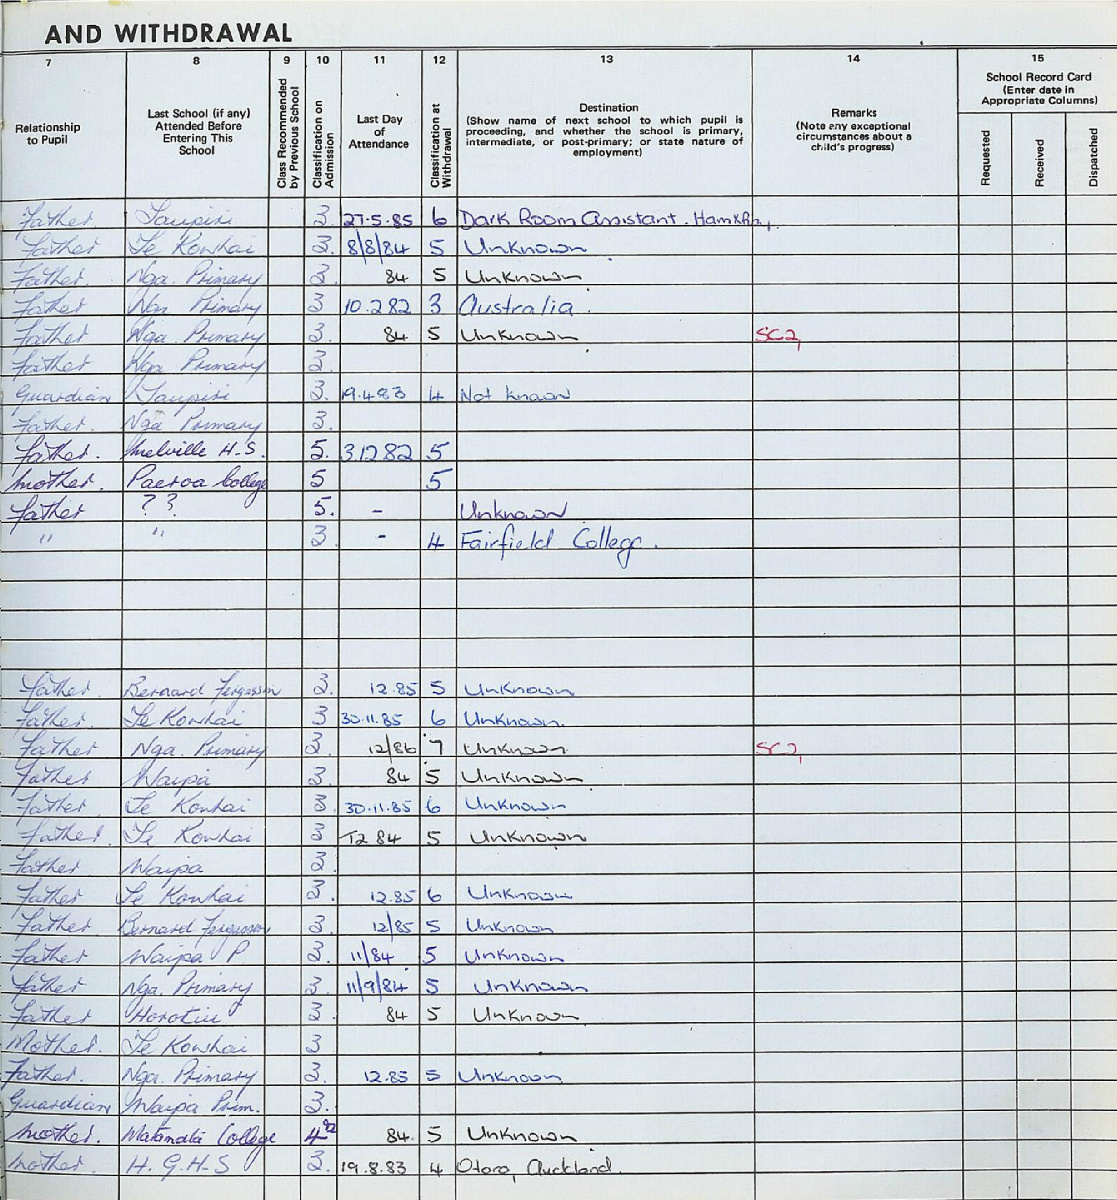 AND WITHDRAWAL
7 8 9 10 11 12 13 14 15
Relationship to Pupil
Last School (if any) Attended Before Entering This School
Class Recommended by Previous School
Classification on Admission
Last Day of Attendance
Classification at Withdrawal
Destination
(Show name of next school to which pupil is proceeding, and whether the school is primary, intermediate, or post-primary; or state nature of employment)
Remarks
(Note any exceptional circumstances about a child's progress)
School Record Card
(Enter date in Appropriate Columns)
Requested
Received
Dispatched
Father Taupiri 3. 27.5.85 6 Dark Room Assistant.
Father Te Kowhai 3. 8/8/84 5 Unknown
Father. Nga. Primary 3. 84 5 Unknown
Father Primary 3 10.2.82 3 Australia.
Father Nga. Primary 3. 84 5 Unknown SC2
Father Nga Primary 3.
Guardian Taupiri 3. 19.4.83 4 Not known
Father. Nga Primary 3.
Father. Melville H.S. 5. 3.12.82 5
Mother. Paeroa College 5 5
Father ?? 5. - Unknown
" " 3. - 4 Fairfield College.
Father. Bernard Fergusson 3. 12.85 5 Unknown
Father. Te Kowhai 3 30.11.85 6 Unknown.
Father Nga. Primary 3. 12/86 7 Unknown SC2
Father Waipa 3. 84 5 Unknown
Father Te Kowhai 3 30.11.85 6 Unknown
Father. Te Kowhai 3 12 84 5 Unknown
Father Waipa 3.
Father Te Kowhai 3. 12.85 6 Unknown
Father. Bernard Fergusson 3. 12/85 5 Unknown
Father Waipa P. 3. 11/84 5 Unknown
Father Nga. Primary 3. 11/9/84 5 Unknown
Father Horotiu 3. 84 5 Unknown
Mother. Te Kowhai 3
Father. Nga. Primary 3. 12.85 5 Unknown
Guardian Waipa Prim. 3.
Mother. Matamata College 4 84. 5 Unknown
Mother. H.G.H.S 3. 19.8.83 4 Otara, Auckland.